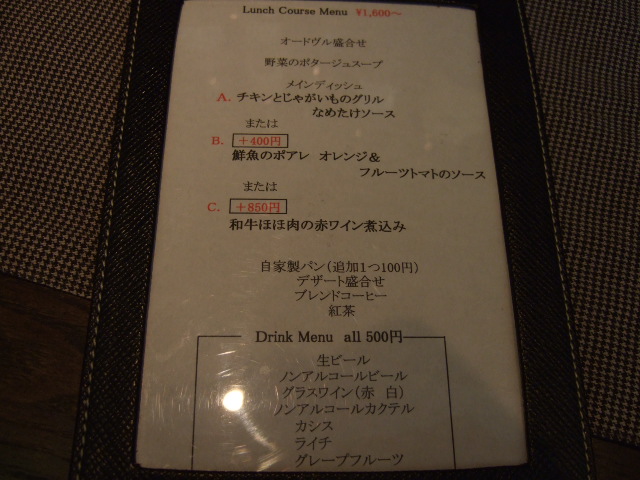 Lunch Course Menu ¥1,600～
オードヴル盛合せ
野菜のポタージュスープ
メインディッシュ
A. チキンとじゃがいものグリル
なめたけソース
または
B. ＋400円
鮮魚のポアレ オレンジ＆
フルーツトマトのソース
または
C. ＋850円
和牛ほほ肉の赤ワイン煮込み
自家製パン（追加1つ100円）
デザート盛合せ
ブレンドコーヒー
紅茶
Drink Menu all 500円
生ビール
ノンアルコールビール
グラスワイン（赤 白）
ノンアルコールカクテル
カシス
ライチ
グレープフルーツ